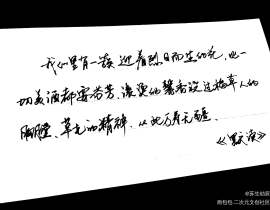 我心里有一簇迎着烈日而生的花，比一
切美酒都要芬芳，滚烫的馨香淹没过稻草人的
胸膛，草扎的精神，从此万寿无疆。
《默读》
二次元文创社区